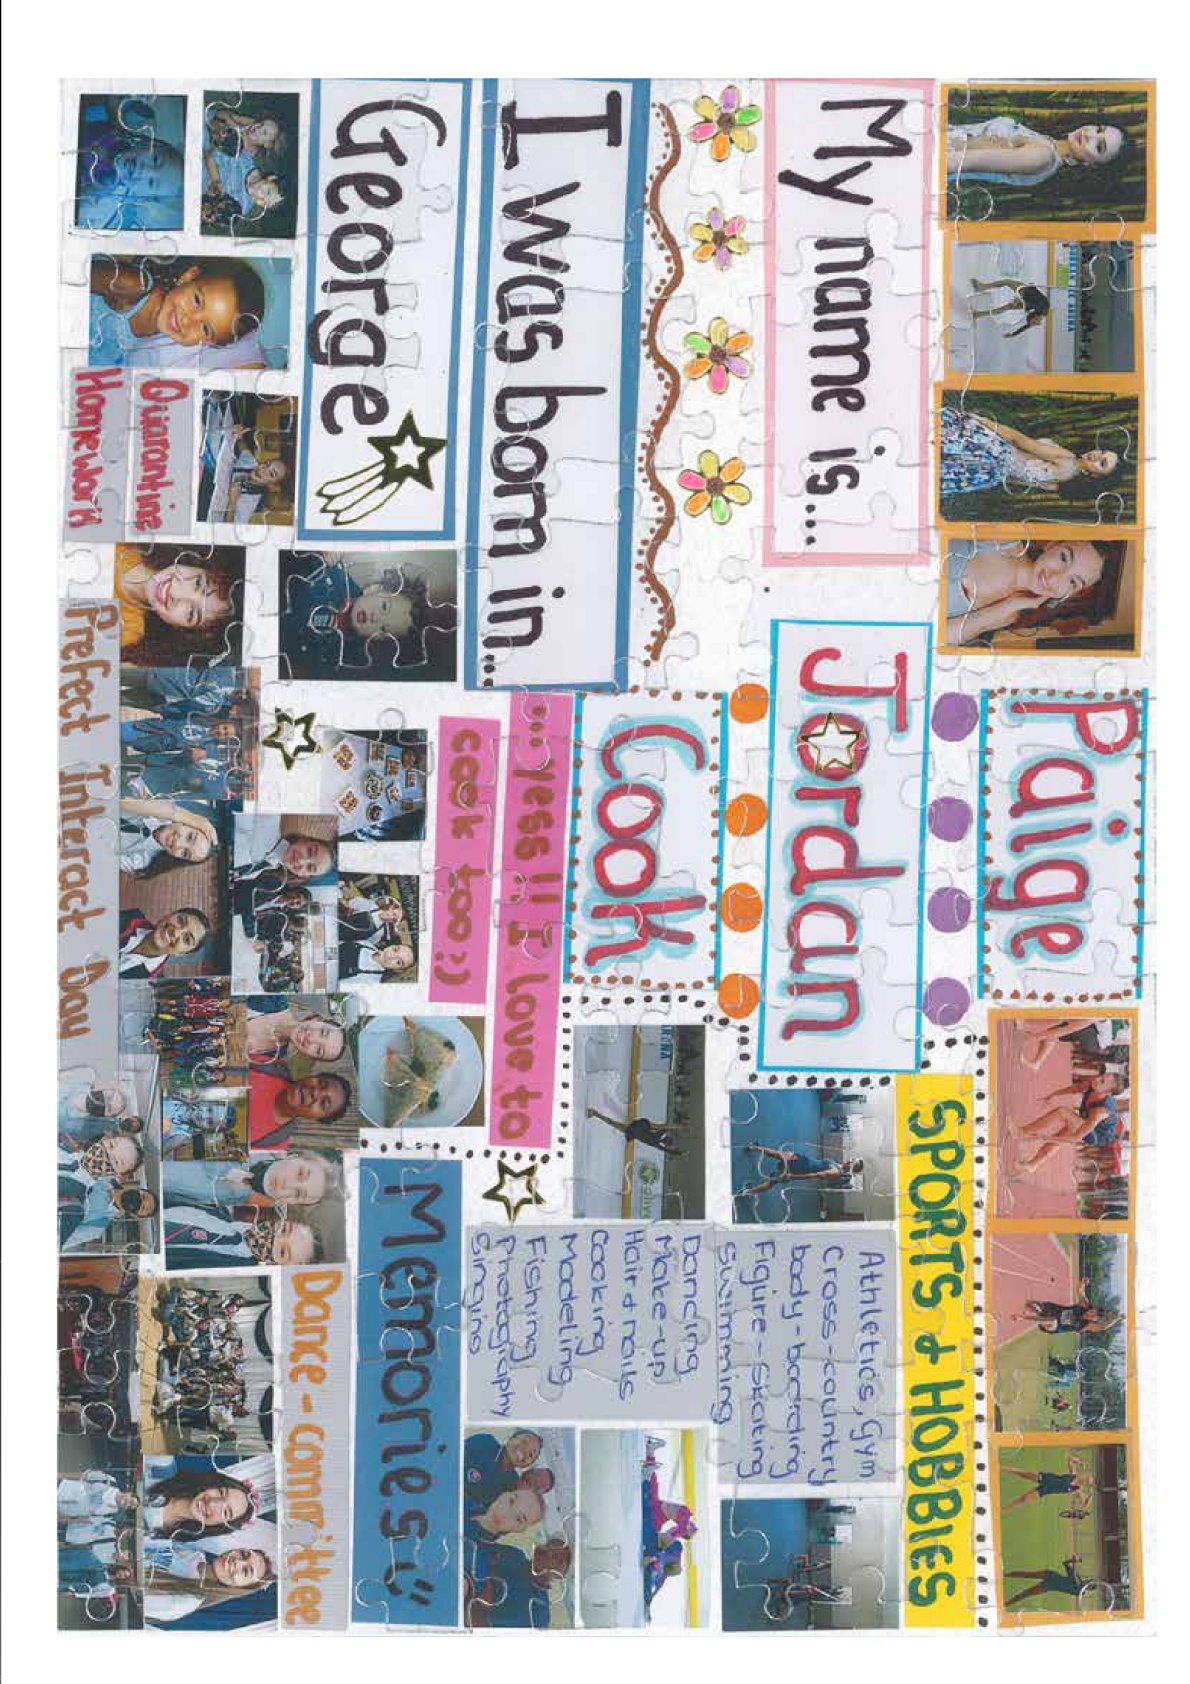 My name is....
Paige
Jordan
Cook
I was born in...
George
...yess!! I love to
cook too:)
SPORTS & HOBBIES
Athletics, Gym
Cross-country
body-boarding
Figure-skating
Swimming
Dancing
Make-up
Hair & nails
Cooking
Modeling
Fishing
Photography
Singing
Memories
Quarantine
Homework
Prefect Interact Day
Dance-committee